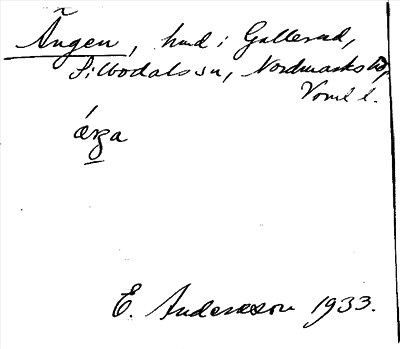 Ängen, hmd i Gallerud,
Silbodals sn, Nordmarks hd,
Vrml l.
E. Andersson 1933.